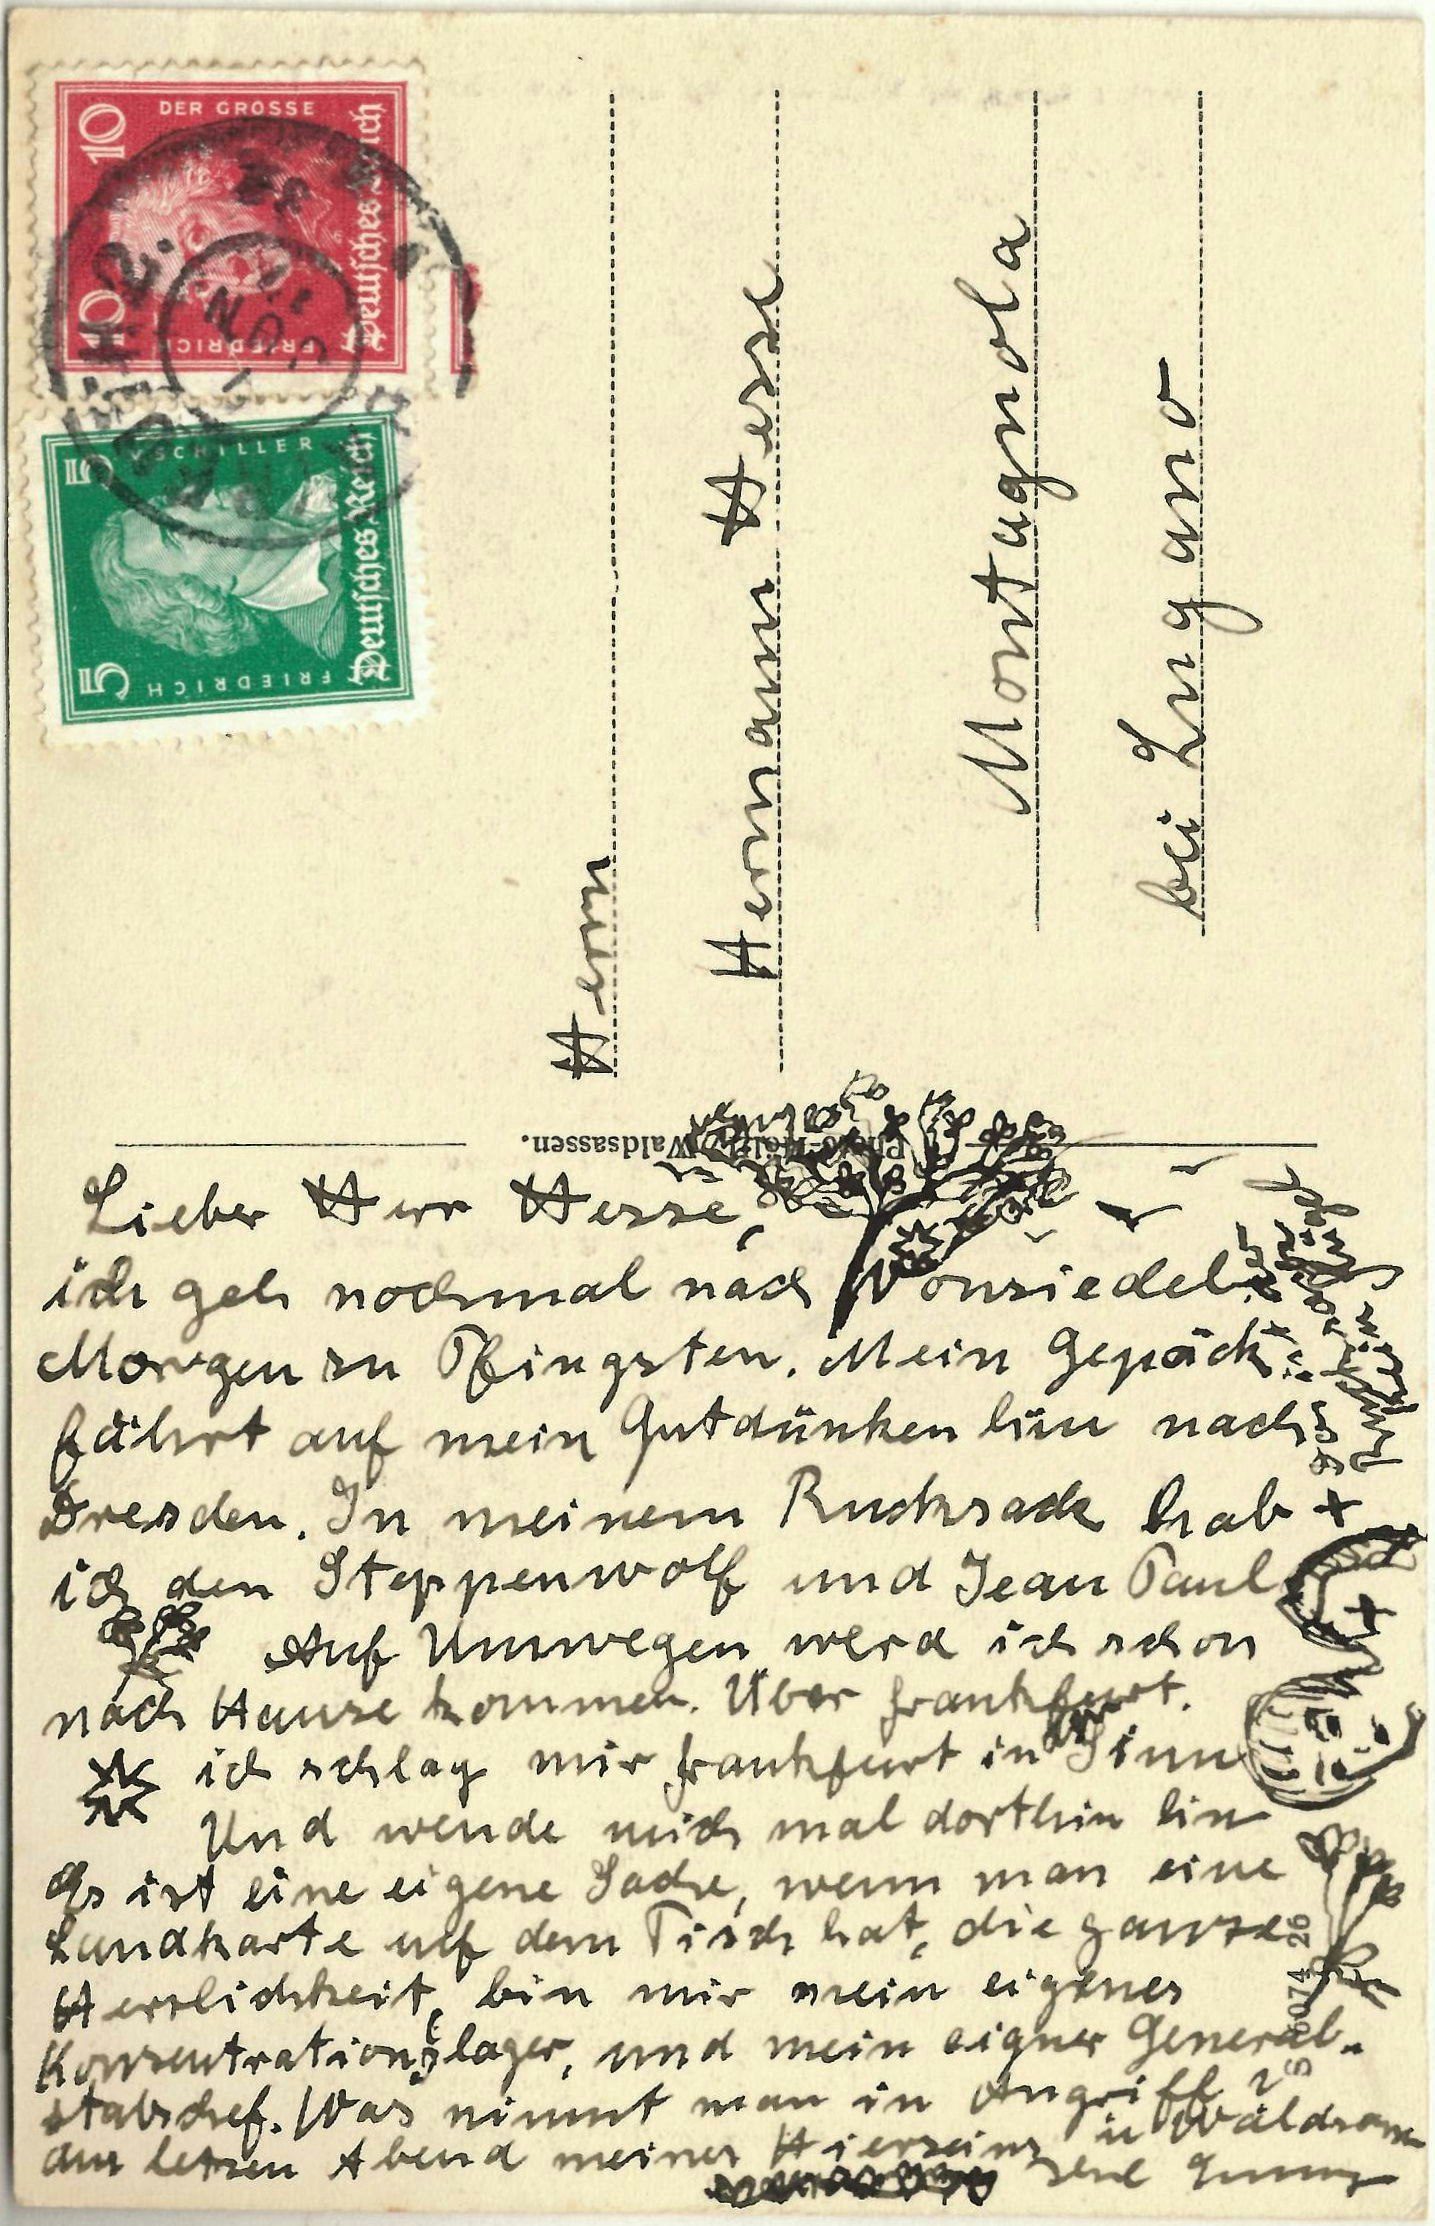 DER GROSSE
10
10
FRIEDRICH
Deutsches Reich
5
SCHILLER
5
FRIEDRICH
Deutsches Reich
Herrn
Hermann Hesse
Montagnola
bei Lugano
Waldsassen.
Lieber Herr Hesse,
ich geh nochmal nach Wonsiedel
Morgen zu Pfingsten. Mein Gepäck
fährt auf mein Gutdünken hin nach
Dresden. In meinem Rucksack hab
ich den Steppenwolf und Jean Paul
Auf Umwegen werd ich schon
nach Hause kommen. Über Frankfurt.
ich schlag mir Frankfurt in Sinn
Und wende mich mal dorthin hin
Es ist eine eigene Sache, wenn man eine
Landkarte auf dem Tisch hat, die ganze
Herrlichkeit, bin mir mein eigenes
Konzentrationslager, und mein eigner General-
stabschef. Was nimmt man in Angriff?
am letzen Abend meines Hierseins in Waldsassen
S 6074 26